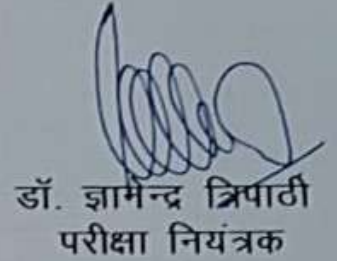 डॉ. ज्ञानेन्द्र त्रिपाठी
परीक्षा नियंत्रक